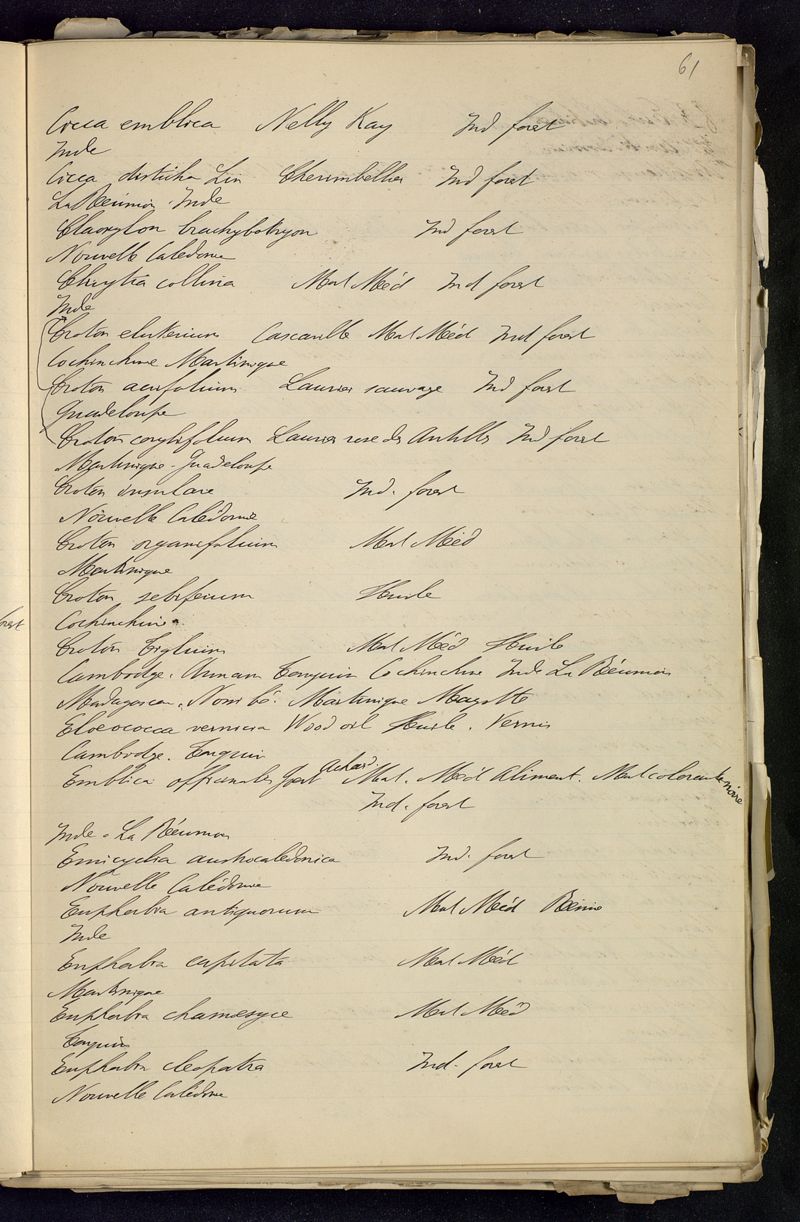 61
Cicca emblica Nelly Kay Ind forest
Inde
Cicca disticha Lin Cherimbellier Ind forest
La Réunion. Inde
Claoxylon brachybotryon Ind forest
Nouvelle Calédonie
Cluytia collina Mat Méd Ind forest
Inde
Croton eluterium Cascarille Mat Méd Ind forest
Cochinchine Martinique
Croton acrifolium Laurier sauvage Ind forest
Guadeloupe
Croton corylifolium Laurier rose des Antilles Ind forest
Martinique. Guadeloupe
Croton insulare Ind. forest
Nouvelle Calédonie
Croton organifolium Mat Méd
Martinique
Croton sebiferum Huile
forest
Cochinchine
Croton Tiglium Mat Méd Huile
Cambodge. Annam Tonquin Cochinchine Inde La Réunion
Madagascar. Nossi bé. Martinique Mayotte
Eloeococca vernicia Wood oil Huile. Vernis
Cambodge. Tonquin
Emblica officinales Goert Achard Mat. Méd Aliment. Mat colorante noire
Ind. forest
Inde. La Réunion
Emicyclia austrocaledonica Ind. forest
Nouvelle Calédonie
Euphorbia antiquorum Mat Méd Résine
Inde
Euphorbia capitata Mat Méd
Martinique
Euphorbia chamaesyce Mat Méd
Tonquin
Euphorbia cleopatra Ind. forest
Nouvelle Calédonie